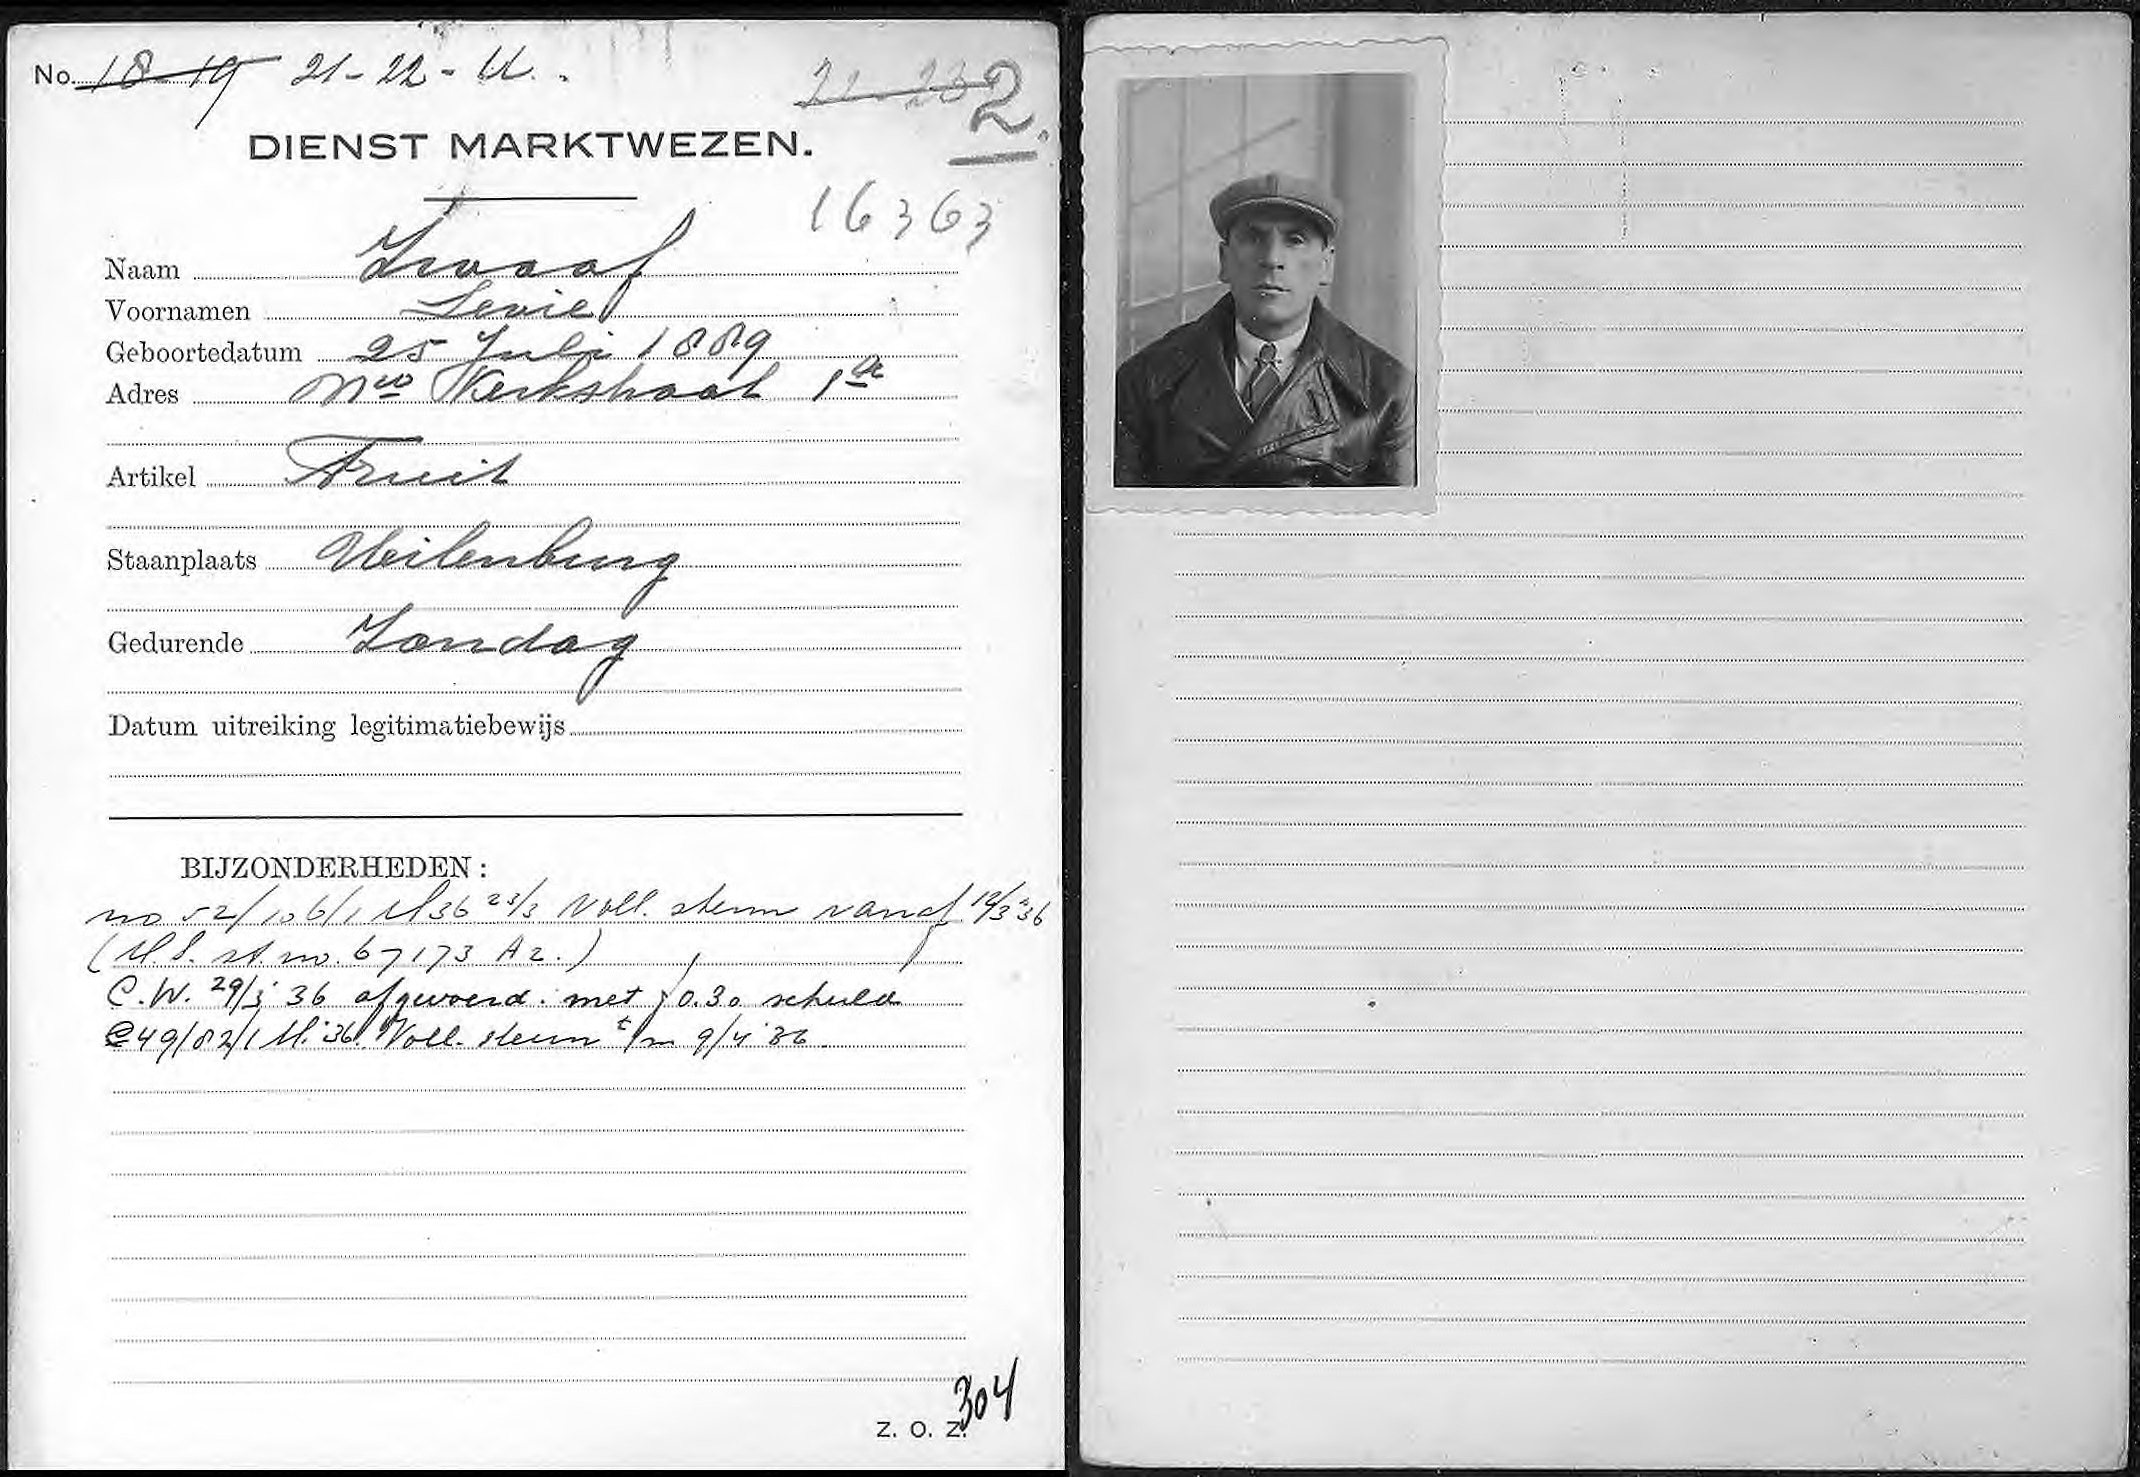 No. 18-19 21-22-U.
21-23 2.
DIENST MARKTWEZEN.
16363
Naam Zwaaf
Voornamen Levie
Geboortedatum 25 Juli 1889
Adres Nwe Kerkstraat 1
Artikel Fruit
Staanplaats Uilenburg
Gedurende Zondag
Datum uitreiking legitimatiebewijs
BIJZONDERHEDEN :
no 52/106/1 M36 23/3 Voll. steun vanaf 12/3 '36
(M.S. st. no. 67173 A2.)
C.W. 29/3 '36 afgevoerd. met f 0.30 schuld
49/82/1 M. '36. Voll. steun t/m 9/4 '36.
304
Z. O. Z.